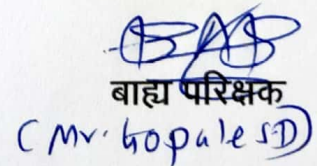 बाह्य परिक्षक
(Mr. Gopale SD)